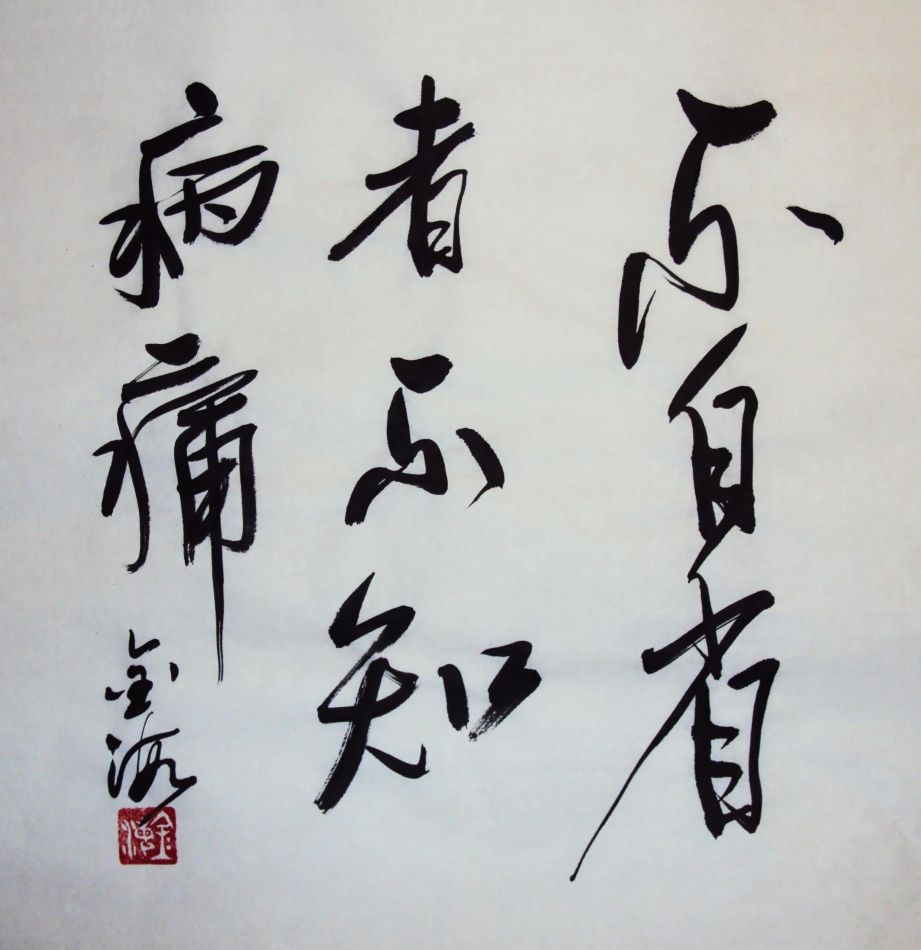 不自省
者不知
病痛
金海
金海